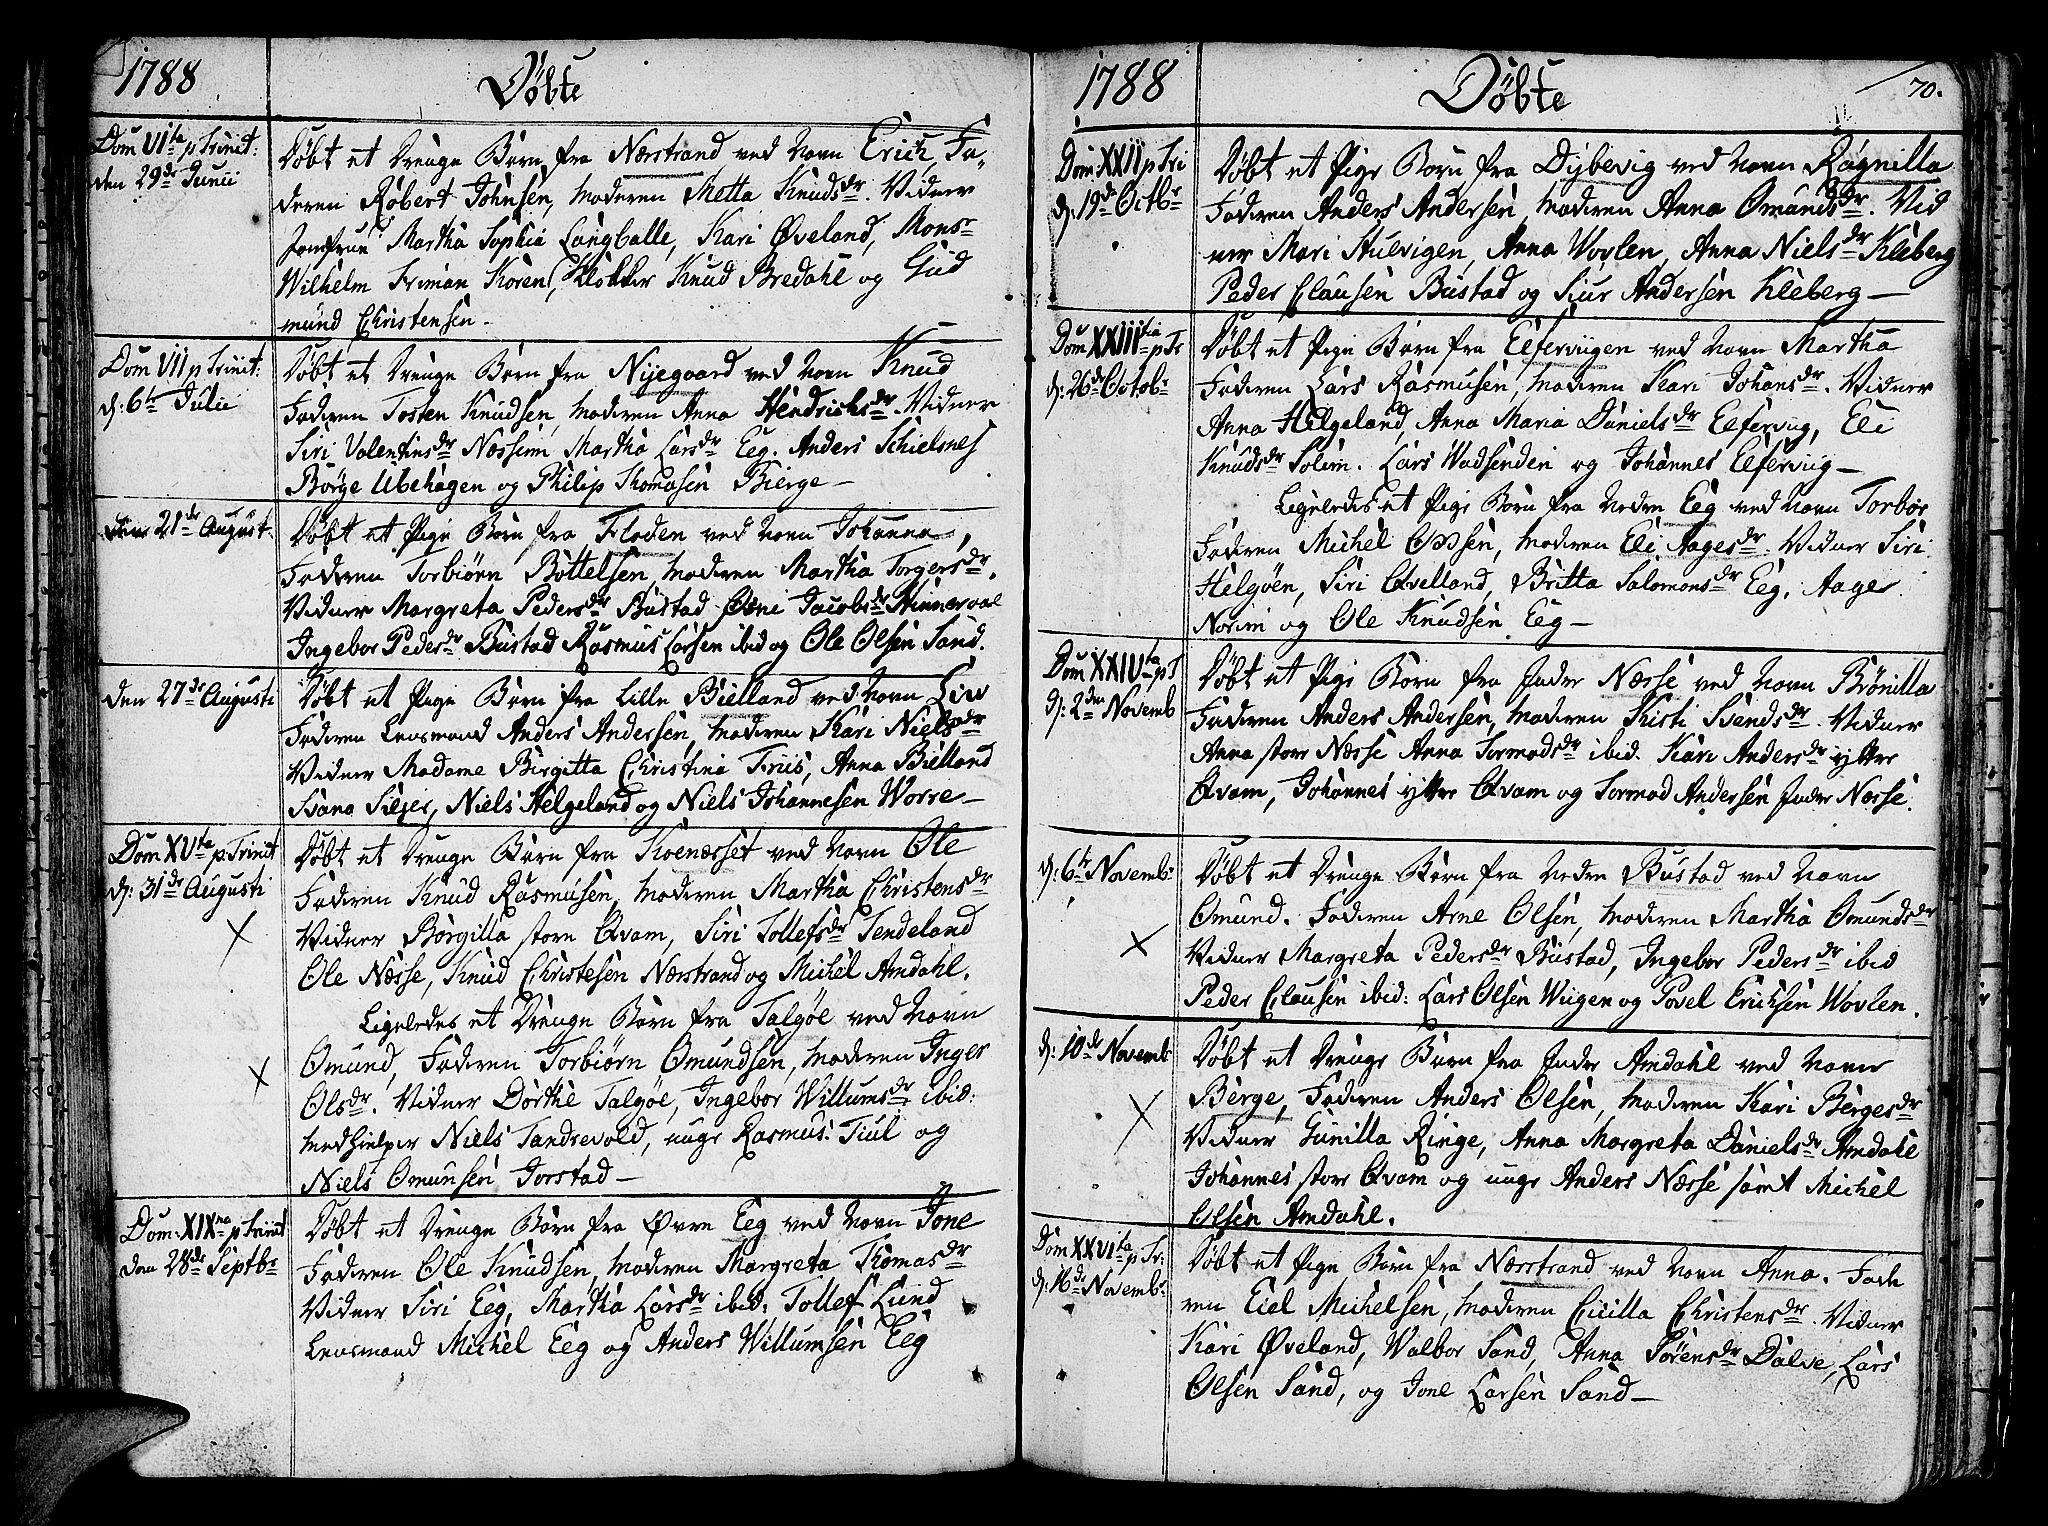 1788 Döbte
Dom VI ta p Trinit:
den 29de Junii
Döbt et Drenge Barn fra Nærstrand ved Navn Erich, Fa-
deren Robert Johnsen, Moderen Metta Knudsdr. Vidner
Jomfrue Martha Sophia Langballe, Kari Øveland, Monsr
Wilhelm Friman Koren, Klokker Knud Bredahl og Gud
mund Christensen.
Dom VII p Trinit:
d: 6te Julii
Döbt et Drenge Barn fra Nijegaard ved Navn Knud
Faderen Tosten Knudsen, Moderen Anna Hendrichsdr. Vidner
Siri Valentinsdr Næssim Martha Larsdr Eeg. Anders Schielsnes
Börge Ubehagen og Philip Thomasen Bierge
den 21de August
Döbt et Pige Barn fra Floden ved Navn Johanna,
Faderen Torbiörn Bottelsen, Moderen Martha Torgersdr.
Vidner Margreta Pedersdr Bustad Jacobsdr
Ingebor Pedersdr Bustad Rasmus Larsen ibid og Ole Olsen Sand.
den 27de Augusti
Döbt et Pige Barn fra Lille Bielland ved Navn Siri
Faderen Lensmand Anders Andersen, Moderen Kari Nielsdr
Vidner Madame Birgitta Christina Friis, Anna Bielland
Niels Helgeland og Niels Johannesen Worre
Dom XV ta p: Trinit
d: 31de Augusti
Döbt et Drenge Barn fra Koenæsset ved Navn Ole
Faderen Knud Rasmusen, Moderen Martha Christensdr
Vidner Börgilla store Qvam, Siri Tollefsdr Tendeland
Ole Næsse, Knud Christesen Nærstrand og Michel Amdahl.
Ligeledes et Drenge Barn fra Talgöe ved Navn
Omund, Faderen Torbiörn Omundsen, Moderen Inger
Olsdr. Vidner Dorthe Talgöe, Ingebor Willumsdr ibid:
Medhielper Niels Tandrevold, unge Rasmus Tiul og
Niels Omunsen Jorstad
Dom: XIX na p Trinit
den 28de Septbr
Döbt et Drenge Barn fra Øvre Eeg ved Navn Jone
Faderen Ole Knudsen, Moderen Margreta Thomasdr
Vidner Siri Eeg, Martha Larsdr ibid: Tollef Lund
Lensmand Michel Eeg og Anders Willumsen Eeg
1788 Döbte 70.
Dom XXII p Tri
d: 19de Octbr
Döbt et Pige Barn fra Dybevig ved Navn Ragnilla
Faderen Anders Andersen, Moderen Anna Omundsdr. Vid
ner Mari Hulvigen, Anna Wovlen, Anna Nielsdr Kleberg
Peder Clausen Bustad og Siur Andersen Kleberg
Dom XXIII tia p Tr
d: 26de Octobr
Döbt et Pige Barn fra Elferviigen ved Navn Martha
Faderen Lars Rasmusen, Moderen Kari Johansdr. Vidner
Anna Helgeland, Anna Maria Danielsdr Elfervig, Eli
Knudsdr Solim. Lars Wadsenden og Johannes Elfervig
Ligeledes et Pige Barn fra Nedre Eeg ved Navn Torbor
Faderen Michel Moderen Eli Aagesdr. Vidner Siri
Helgöen, Siri Qvelland, Britta Salomonsdr Eeg. Aage
Norim og Ole Knudsen Eeg
Dom XXIV ta p T
d: 2den Novemb
Döbt et Pige Barn fra Indre Næsse ved Navn Brönilla
Faderen Anders Andersen, Moderen Kisti Svendsdr. Vidner
Anna store Næsse Anna Tormodsdr ibid. Kari Andersdr ijttre
Qvam, Johannes ijttre Qvam og Tormod Andersen Indre Næsse.
d: 6te Novembr
Döbt et Drenge Barn fra Nedre Bustad ved Navn
Omund. Faderen Arne Olsen, Moderen Martha Omundsdr
Vidner Margreta Pedersdr Bustad, Ingebor Pedersdr ibid
Peder Clausen ibid: Lars Olsen Wiigen og Povel Ericksen Wovlen.
d: 10de Novemb
Döbt et Drenge Barn fra Indre Amdahl ved Navn
Berge, Faderen Anders Olsen, Moderen Kari Bergesdr
Vidner Gunilla Ringe, Anna Margreta Danielsdr Amdahl
Johannes store Qvam og unge Anders Næsse samt Michel
Olsen Amdahl.
Dom XXVI ta p Tr:
d: 16de Novembr
Döbt et Pige Barn fra Nærstrand ved Navn Anna. Fade
ren Eiel Michelsen, Moderen Cicilla Christensdr. Vidner
Kari Øveland, Walbor Sand, Anna Sörensdr Dalve, Lars
Olsen Sand, og Jone Larsen Sand